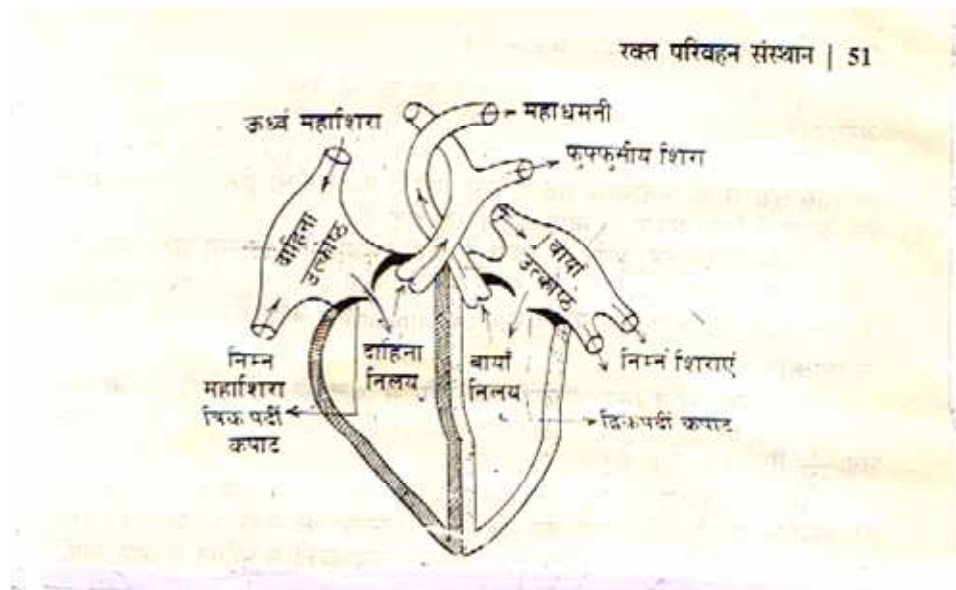 रक्त परिवहन संस्थान | 51
ऊर्ध्व महाशिरा
महाधमनी
फुफ्फुसीय शिरा
दाहिना
उत्कोष्ठ
बायां
उत्कोष्ठ
निम्न
महाशिरा
दाहिना
निलय
बायाँ
निलय
निम्न शिराएं
त्रिक पर्दी
कपाट
द्विकपर्दी कपाट